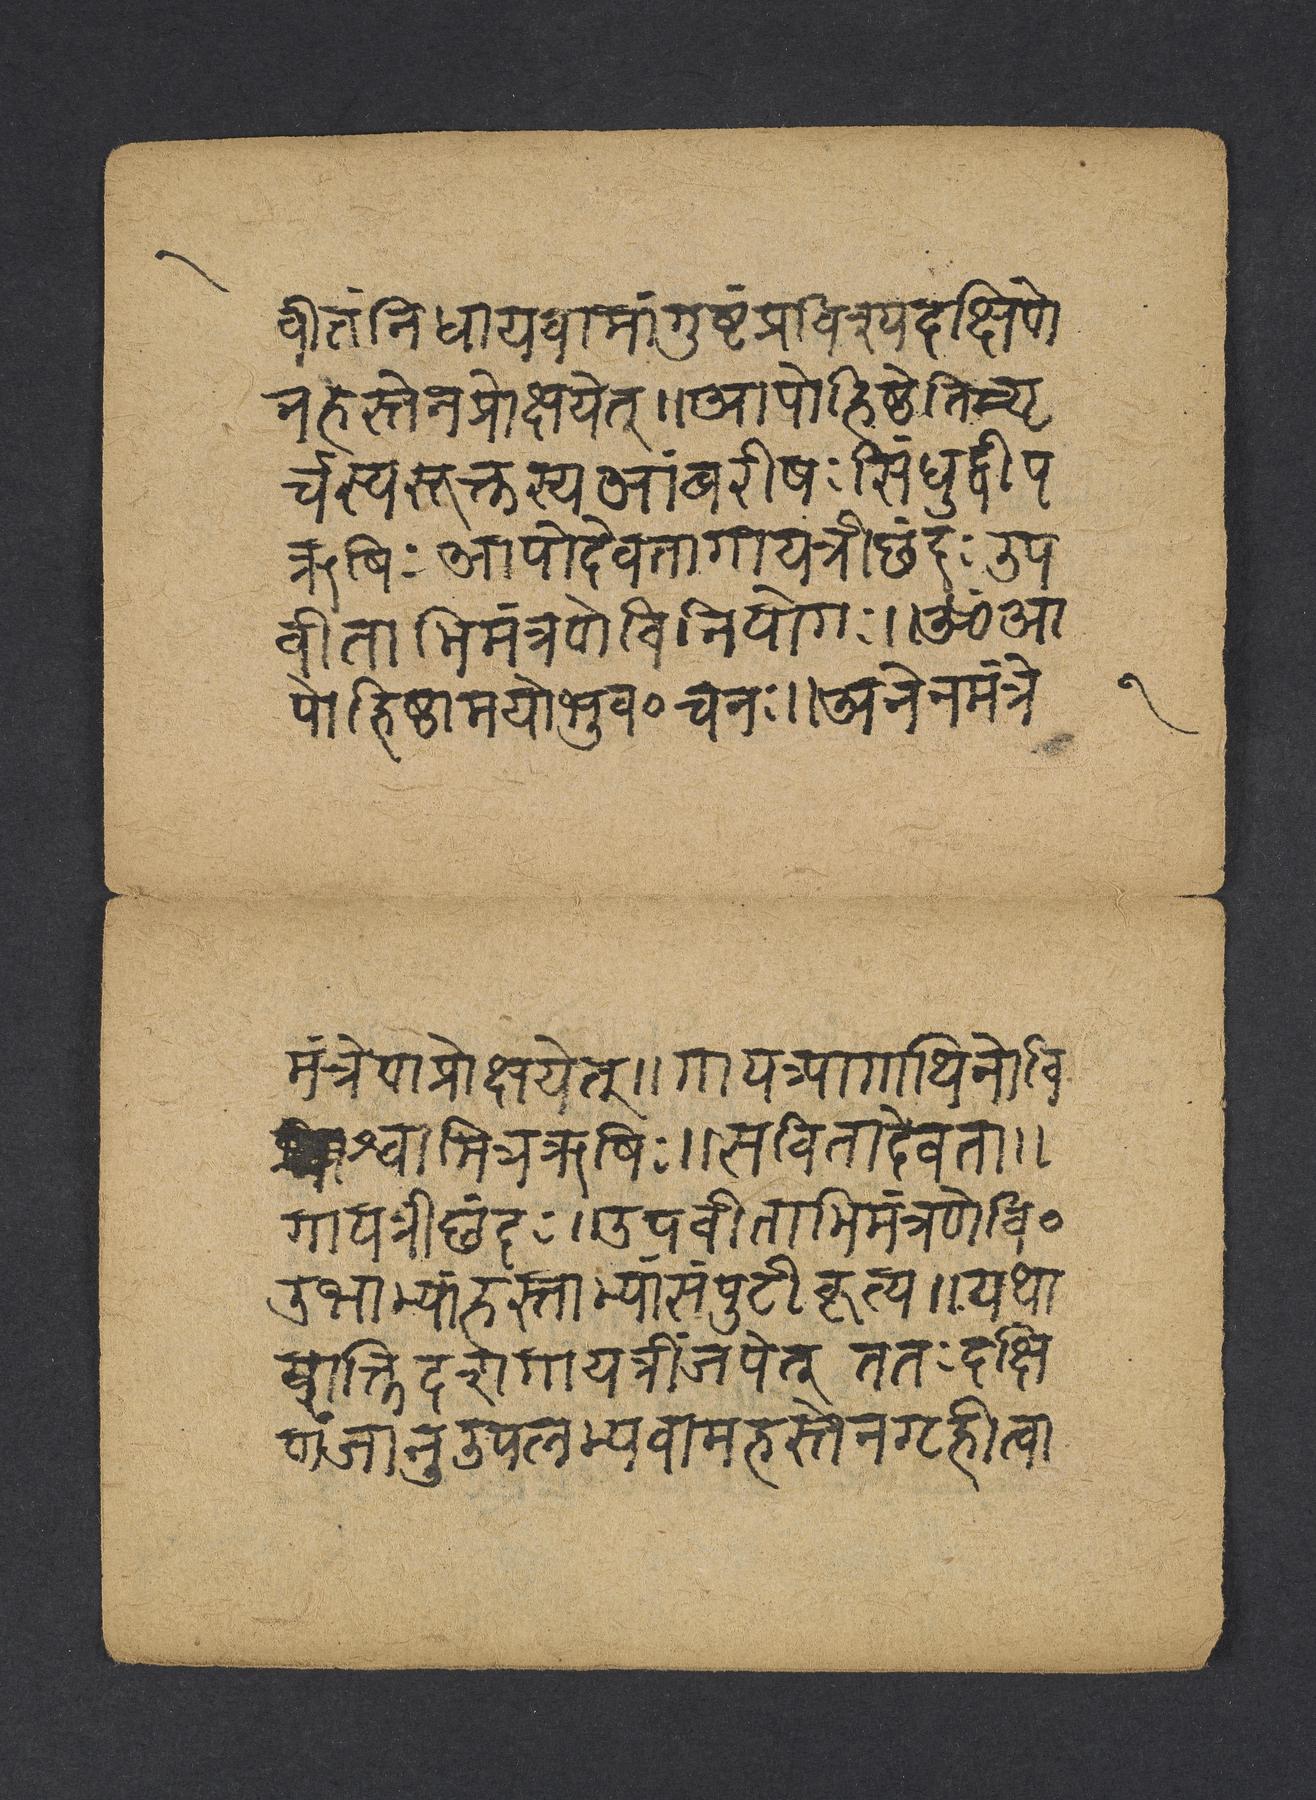 वीतंनिधायवामांगुष्टंप्रविश्यदक्षिणे
नहस्तेनप्रोक्षयेत्॥आपोहिष्ठेतिनवृ
र्चस्यसूक्तस्यआंबरीषःसिंधुद्वीप
ऋषिःआपोदेवतागायत्रीछंदःउप
वीताभिमंत्रणेविनियोगः॥ॐआ
पोहिष्ठामयोभुव०चनः॥अनेनमंत्रे
१
मंत्रेणप्रोक्षयेत्॥गायत्र्यागाथिनोवि
श्वामित्रऋषिः॥सवितादेवता॥
गायत्रीछंदः॥उपवीताभिमंत्रणेवि०
उभाभ्यांहस्ताभ्यांसंपुटीकृत्य॥यथा
शक्तिदशगायत्रींजपेत् ततःदक्षि
णंजानुउपलभ्यवामहस्तेनगृहीत्वा